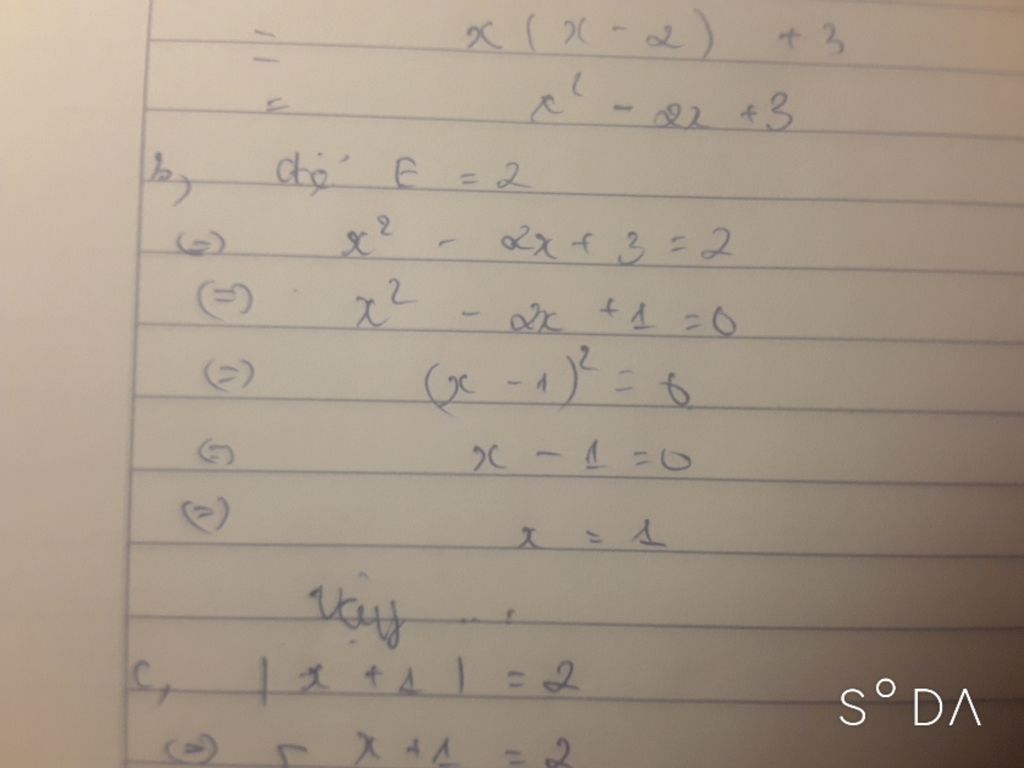 = x ( x - 2 ) + 3
= x² - 2x + 3
b, để E = 2
(=) x² - 2x + 3 = 2
(=) x² - 2x + 1 = 0
(=) (x - 1)² = 0
(=) x - 1 = 0
(=) x = 1
Vậy ...
c, | x + 1 | = 2
(=) [ x + 1 = 2
SODA